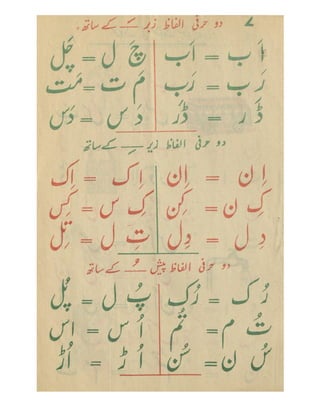 ۷ دو حرفی الفاظ زبر ـَـ کے ساتھ۔
اَ ب = اَب چَ ل = چَل
رَ ب = رَب مَ ت = مَت
ڈَ ر = ڈَر دَ س = دَس
دو حرفی الفاظ زیر ـِـ کے ساتھ
اِ ن = اِن اِ ک = اِک
کِ ن = کِن کِ س = کِس
دِ ل = دِل تِ ل = تِل
دو حرفی الفاظ پیش ـُـ کے ساتھ
رُ ک = رُک پُ ل = پُل
تُ م = تُم اُ س = اُس
سُ ن = سُن اُ ڑ = اُڑ